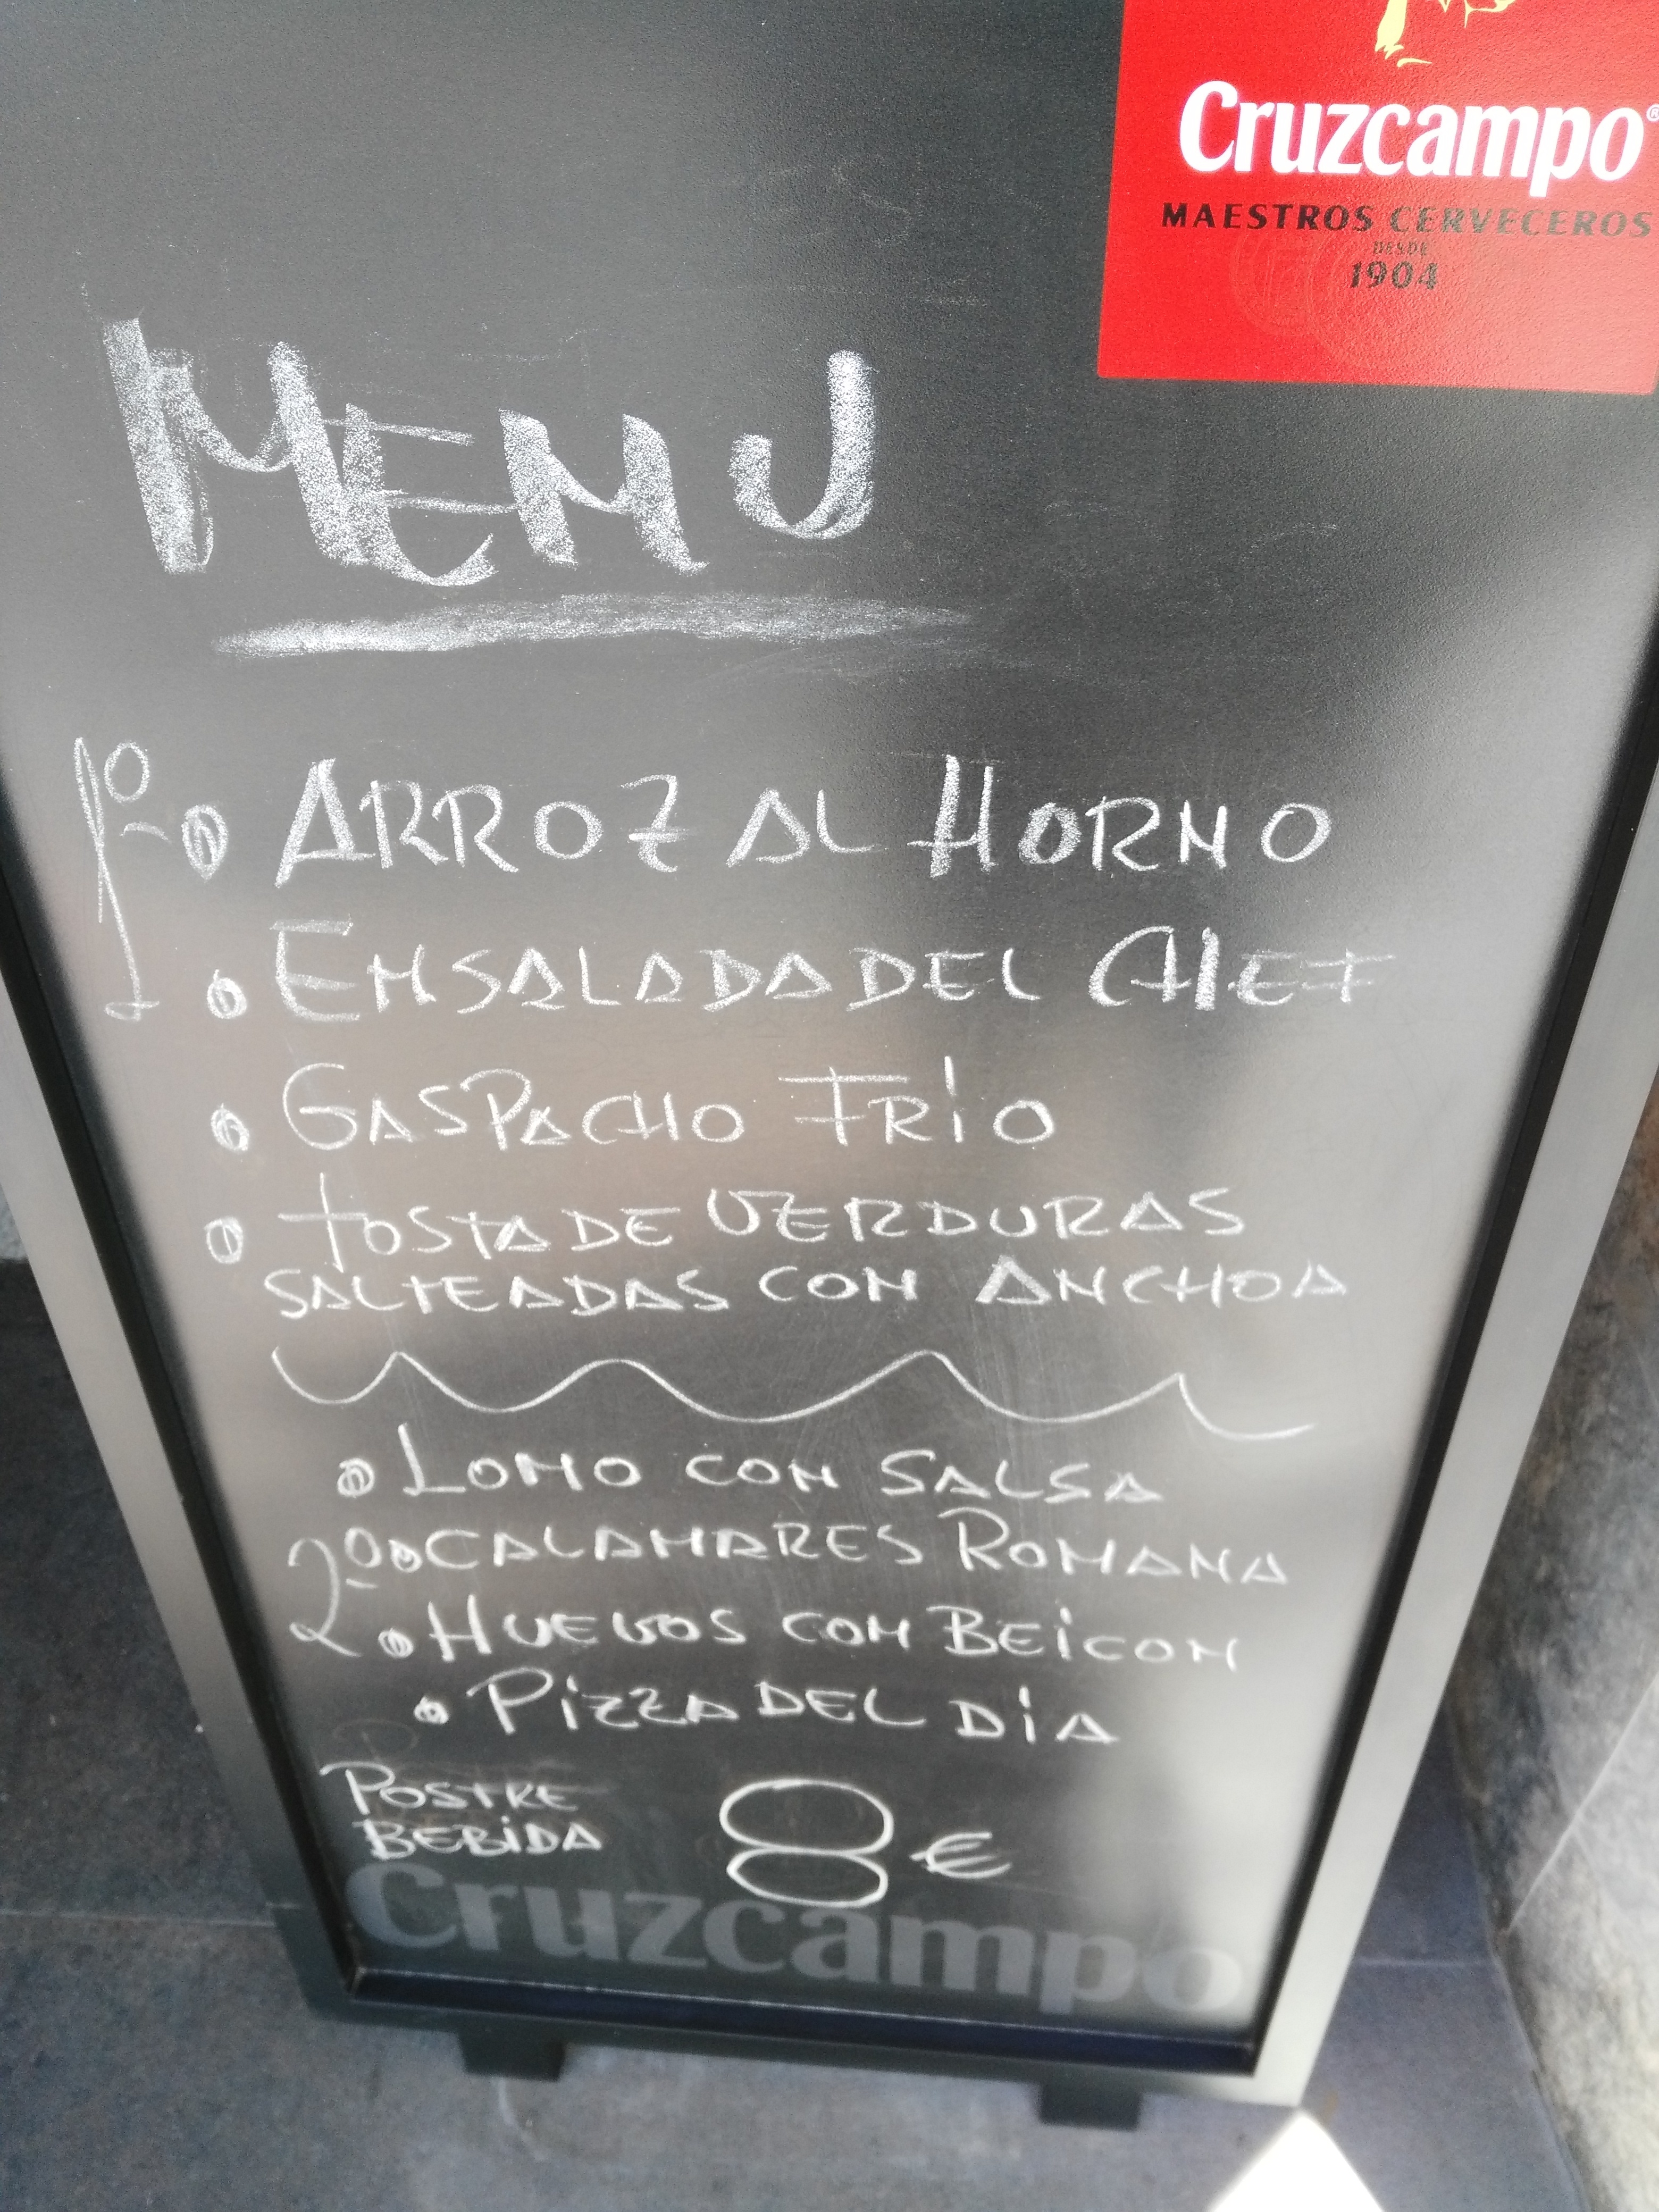 Cruzcampo®
MAESTROS CERVECEROS
DESDE
1904
MENU
1º • ARROZ AL HORNO
• ENSALADA DEL CHEF
• GASPACHO FRÍO
• TOSTA DE VERDURAS
SALTEADAS CON ANCHOA
• LOMO CON SALSA
2º • CALAMARES ROMANA
• HUEVOS CON BEICON
• PIZZA DEL DÍA
POSTRE
BEBIDA
8 €
Cruzcampo